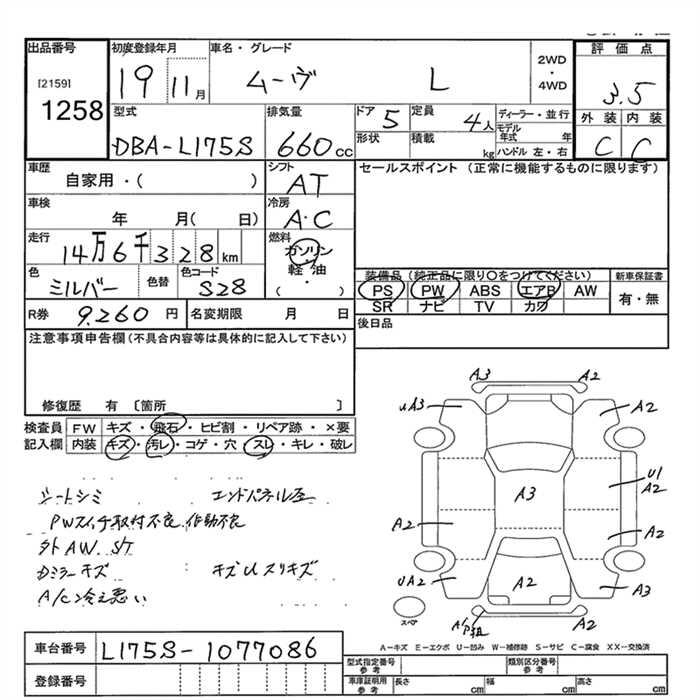 出品番号
[2159]
1258
初度登録年月
19 11月
車名・グレード
ムーヴ L
2WD
・
4WD
評価点
3.5
外装 内装
C C
型式
DBA-L175S
排気量
660cc
ドア 5
定員 4人
形状
積載 kg
ディーラー・並行
モデル年式 年
ハンドル 左・右
車歴
自家用・( )
シフト
AT
セールスポイント (正常に機能するものに限ります)
車検
年 月( 日)
冷房
A・C
走行
14万6千328km
燃料
ガソリン
軽・油
( )
色
シルバー
色替
色コード
S28
装備品 (純正品に限り○をつけてください)
PS PW ABS エアB AW
SR ナビ TV カワ
新車保証書
有・無
R券 9,260円
名変期限 月 日
後日品
注意事項申告欄(不具合内容等は具体的に記入して下さい)
修復歴 有 〔箇所 〕
検査員記入欄
FW キズ・飛石・ヒビ割・リペア跡・×要
内装 キズ・汚レ・コゲ・穴・スレ・キレ・破レ
シートシミ エンドパネル歪
PWスイッチ取付不良 作動不良
外AW. ST
Dミラーキズ キズUスリキズ
A/C冷え悪い
A3 A2
UA3 A2
A3
U1
A2
A2 A2
UA2 A2 A3
スペア
A-キズ E-エクボ U-凹み W-補修跡 S-サビ C-腐食 XX-交換済
車台番号
L175S-1077086
登録番号
型式指定番号 参考
類別区分番号 参考
車庫証明用 参考
長さ cm
幅 cm
高さ cm